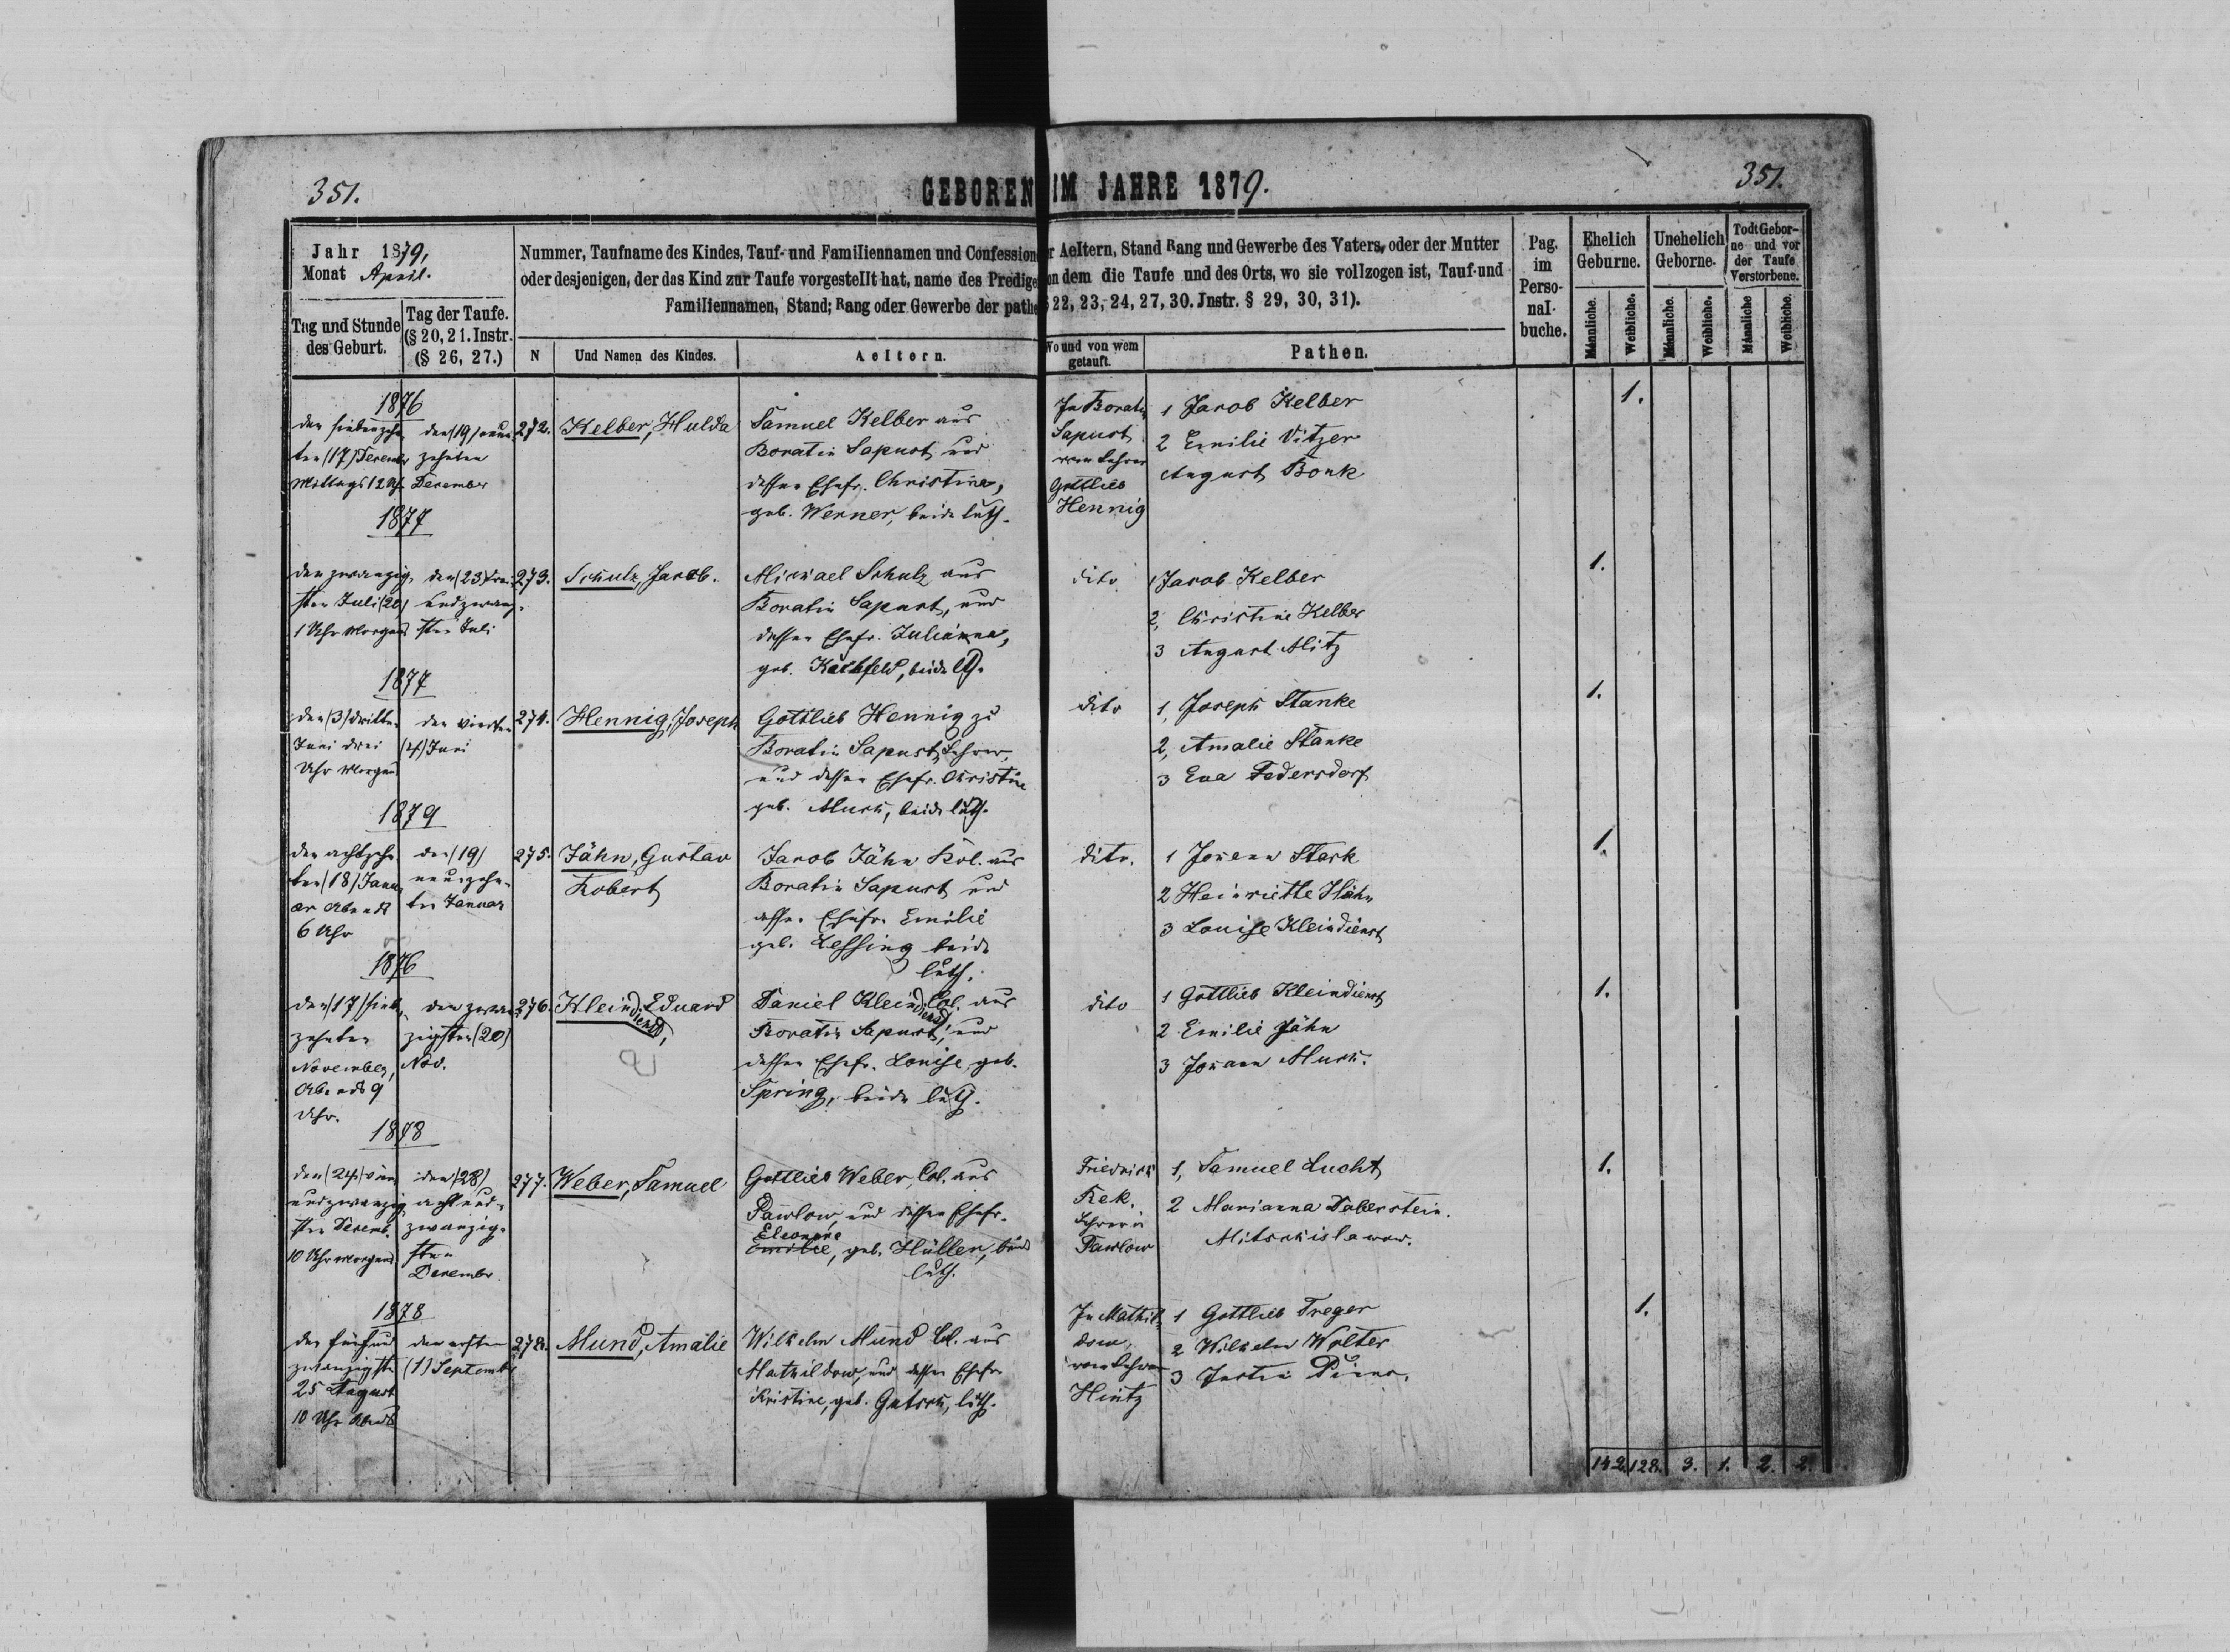 351.
GEBOREN IM JAHRE 1879.
351.
Jahr 1879,
Monat April.
Tag und Stunde
des Geburt.
Tag der Taufe.
(§ 20, 21. Instr.
(§ 26, 27.)
Nummer, Taufname des Kindes, Tauf- und Familiennamen und Confession er Aeltern, Stand Rang und Gewerbe des Vaters, oder der Mutter
oder desjenigen, der das Kind zur Taufe vorgestellt hat, name des Predige on dem die Taufe und des Orts, wo sie vollzogen ist, Tauf-und
Familiennamen, Stand; Rang oder Gewerbe der pathe § 22, 23, 24, 27, 30. Jnstr. § 29, 30, 31).
N
Und Namen des Kindes.
Aeltern.
Wo und von wem
getauft.
Pathen.
Pag.
im
Perso-
nal-
buche.
Ehelich
Geburne.
Unehelich
Geborne.
Todt Gebor-
ne und vor
der Taufe
Verstorbene.
Männliche.
Weibliche.
Männliche.
Weibliche.
Männliche
Weibliche.
1876
den siebenzehn
ten (17) December
Mittags 12 Uhr
den (19) neun
zehnten
December
272.
Kelber, Hulda
Samuel Kelber aus
Boratin Sapust und
dessen Ehefr. Christine,
geb. Werner, beide luth.
In Boratin
Sapust
vom Lehrer
Gottlieb
Hennig
1 Jacob Kelber
2 Emilie Vitzer
August Bonk
1.
1877
den zwanzig
sten Juli (20)
1 Uhr Morgens
den (23) drei
undzwanz-
sten Juli
273.
Schulz, Jacob.
Michael Schulz aus
Boratin Sapust, und
dessen Ehefr. Julianna,
geb. beide lth.
dito
1 Jacob Kelber
2, Christine Kelber
3 August Mitz
1.
1877
den (3) dritten
Juni drei
Uhr Morgens
den vierten
(4) Juni
274.
Hennig, Joseph
Gottlieb Hennig zu
Boratin Sapust, Lehrer,
und dessen Ehefr. Christine
geb. Much, beide luth.
dito
1, Joseph Stanke
2, Amalie Stanke
3 Eva Federsdorf
1.
1879
den achtzehn
ten (18) Janu
ar Abends
6 Uhr
den (19)
neunzehn-
ten Januar
275.
Jähn, Gustav
Robert
Jacob Jähn Kol. aus
Boratin Sapust und
dessen Ehefr. Emilie
geb. Lessing beide
luth.
dito.
1 Johann Stark
2 Heinriette Hähn
3 Louise Kleindienst
1.
1876
den (17) sieb
zehnten
November,
Abends 9
Uhr.
den zwan
zigsten (20)
Nov.
276.
Kleindienst, Eduard
Daniel Kleindienst Col. aus
Boratin Sapust, und
dessen Ehefr. Louise, geb.
Spring, beide luth.
dito
1 Gottlieb Kleindienst
2 Emilie Jähn
3 Johann Much.
1.
1878
den (24) vier
undzwanzig
sten Decemb.
10 Uhr Morgens
den (28)
acht und-
zwanzig-
sten
December.
277.
Weber, Samuel
Gottlieb Weber, Col. aus
Pawlow, und dessen Ehefr.
Eleonora
Emilie, geb. Hüller, beide
luth.
Friedrich
Rek.
Lehrer in
Pawlow
1, Samuel Lucht
2 Marianna Daberstein.
Mitschislawow.
1.
1878
den fünfund
zwanzigsten
25 August
10 Uhr Abends
den ersten
(1) September
278.
Mund, Amalie
Wilhelm Mund Col. aus
Mathildow, und dessen Ehefr.
Kristine, geb. Gatsch, luth.
In Mathil-
dow,
vom Lehrer
Hintz
1 Gottlieb Treger
2 Wilhelm Wolter
3 Justin
1.
142. 128. 3. 1. 2. 2.